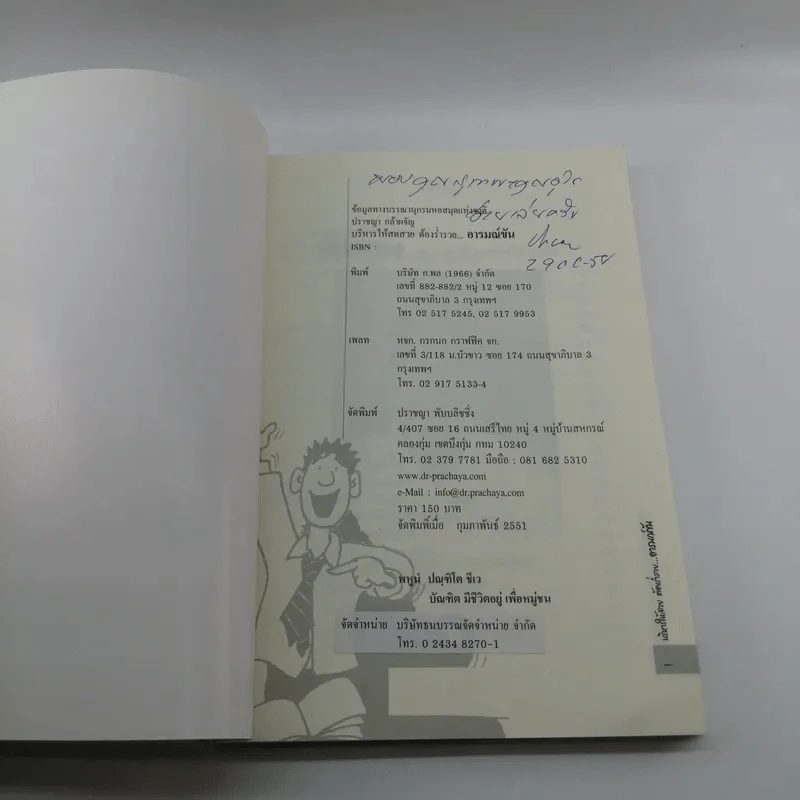 ข้อมูลทางบรรณานุกรมหอสมุดแห่งชาติ
ปราชญา กล้าผจัญ
บริหารให้สดสวย ต้องร่ำรวย... อารมณ์ขัน
ISBN :
พิมพ์ บริษัท ก.พล (1966) จำกัด
เลขที่ 882-882/2 หมู่ 12 ซอย 170
ถนนสุขาภิบาล 3 กรุงเทพฯ
โทร 02 517 5245, 02 517 9953
เพลท หจก. กรกนก กราฟฟิค จก.
เลขที่ 3/118 ม.บัวขาว ซอย 174 ถนนสุขาภิบาล 3
กรุงเทพฯ
โทร. 02 917 5133-4
จัดพิมพ์ ปราชญา พับบลิชชิ่ง
4/407 ซอย 16 ถนนเสรีไทย หมู่ 4 หมู่บ้านสหกรณ์
คลองกุ่ม เขตบึงกุ่ม กทม 10240
โทร. 02 379 7781 มือถือ : 081 682 5310
www.dr-prachaya.com
e-Mail : info@dr.prachaya.com
ราคา 150 บาท
จัดพิมพ์เมื่อ กุมภาพันธ์ 2551
พหูนํ ปณฺฑิโต ชีเว
บัณฑิต มีชีวิตอยู่ เพื่อหมู่ชน
จัดจำหน่าย บริษัทธนบรรณจัดจำหน่าย จำกัด
โทร. 0 2434 8270-1